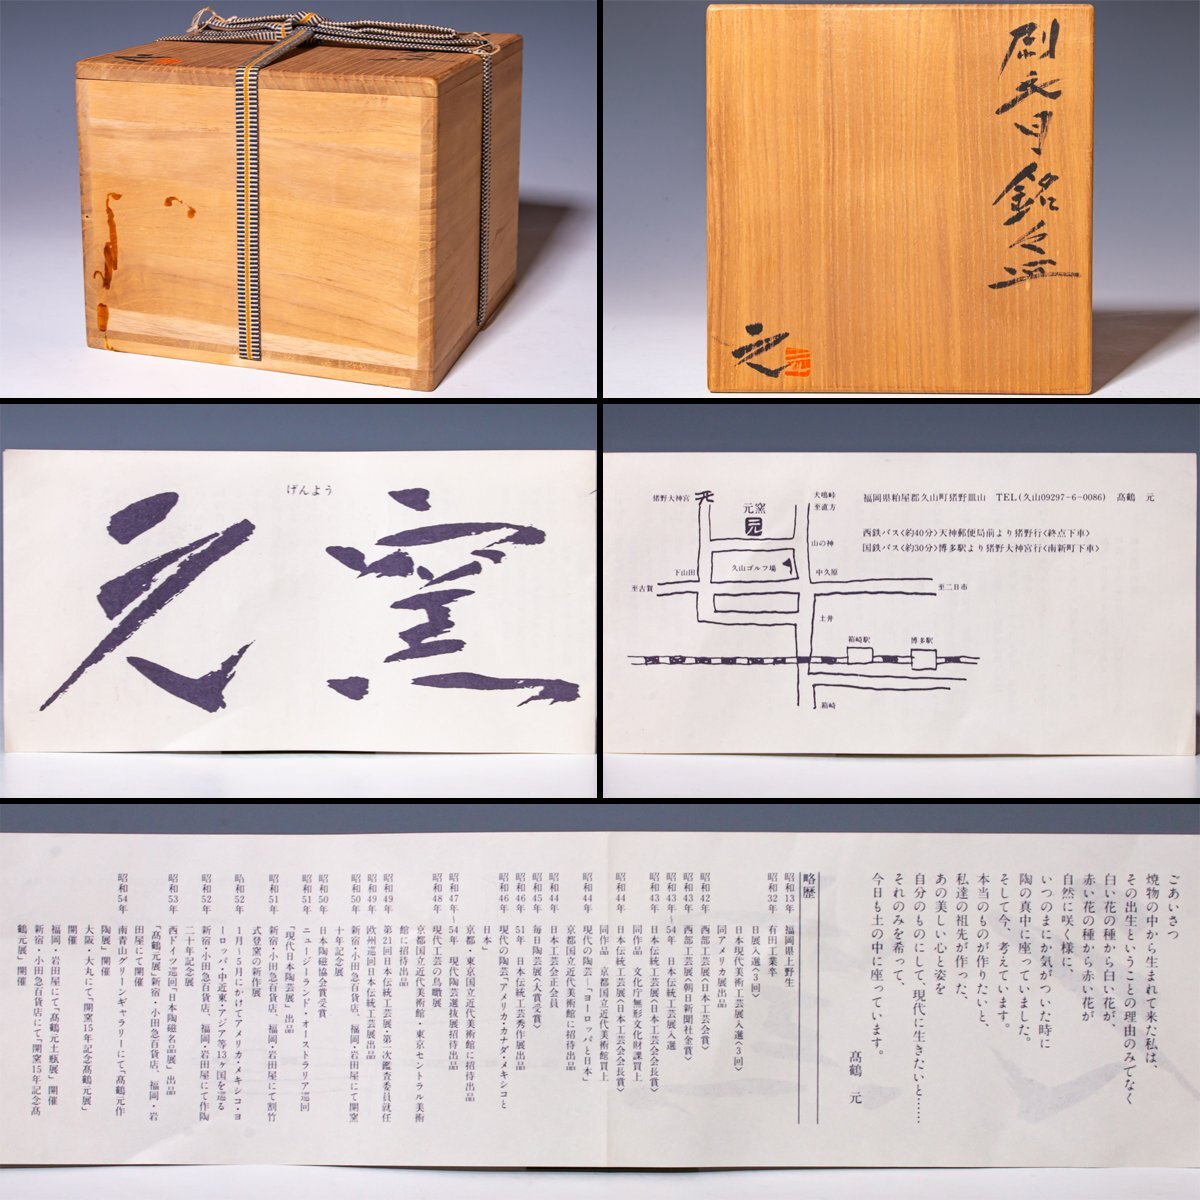 銘々皿
元
げんよう
元窯
福岡県粕屋郡久山町猪野皿山 TEL(久山09297-6-0086) 髙鶴 元
西鉄バス〈約40分〉天神郵便局前より猪野行〈終点下車〉
国鉄バス〈約30分〉博多駅より猪野大神宮行〈南新町下車〉
猪野大神宮
元窯
元
犬鳴峠
至直方
山の神
久山ゴルフ場
下山田
中久原
至古賀
至二日市
土井
箱崎駅
博多駅
箱崎
ごあいさつ
焼物の中から生まれて来た私は、
その出生ということの理由のみでなく
白い花の種から白い花が、
赤い花の種から赤い花が
自然に咲く様に、
いつのまにか気がついた時に
陶の真中に座っていました。
そして今、考えています。
本当のものが作りたいと、
私達の祖先が作った、
あの美しい心と姿を
自分のものにして、現代に生きたいと……
それのみを希って、
今日も土の中に座っています。
髙鶴 元
略歴
昭和13年 福岡県上野生
昭和32年 有田工業卒
日展入選〈3回〉
日本現代美術工芸展入選〈3回〉
同アメリカ展出品
昭和42年 西部工芸展〈日本工芸会賞〉
昭和43年 西部工芸展〈朝日新聞社金賞〉
昭和43年～54年 日本伝統工芸展入選
昭和43年 日本伝統工芸展〈日本工芸会会長賞〉
同作品 文化庁無形文化財課買上
昭和44年 日本伝統工芸展〈日本工芸会会長賞〉
同作品 京都国立近代美術館買上
昭和44年 現代の陶芸―「ヨーロッパと日本」
京都国立近代美術館に招待出品
昭和44年 日本工芸会正会員
昭和45年 毎日陶芸展〈大賞受賞〉
昭和46年～51年 日本伝統工芸秀作展出品
昭和46年 現代の陶芸「アメリカ・カナダ・メキシコと
日本」
京都・東京国立近代美術館に招待出品
昭和47年～54年 現代陶芸選抜展招待出品
昭和48年 現代工芸の鳥瞰展
京都国立近代美術館・東京セントラル美術
館に招待出品
昭和49年 第21回日本伝統工芸展・第一次鑑査委員就任
昭和49年 欧州巡回日本伝統工芸展出品
昭和50年 新宿・小田急百貨店、福岡・岩田屋にて開窯
十年記念展
昭和50年 日本陶磁協会賞受賞
昭和51年 ニュージーランド・オーストラリア巡回
「現代日本陶芸展」出品
昭和51年 新宿・小田急百貨店、福岡・岩田屋にて割竹
式登窯の新作展
昭和52年 1月～5月にかけてアメリカ・メキシコ・ヨ
ーロッパ・中近東・アジア等13ヶ国を巡る
昭和52年 新宿・小田急百貨店、福岡・岩田屋にて作陶
二十年記念展
昭和53年 西ドイツ巡回「日本陶磁名品展」出品
「髙鶴元展」新宿・小田急百貨店、福岡・岩
田屋にて開催
昭和54年 南青山グリーンギャラリーにて「髙鶴元作
陶展」開催
大阪・大丸にて、「開窯15年記念髙鶴元展」
開催
福岡・岩田屋にて「髙鶴元土瓶展」開催
新宿・小田急百貨店にて「開窯15年記念髙
鶴元展」開催